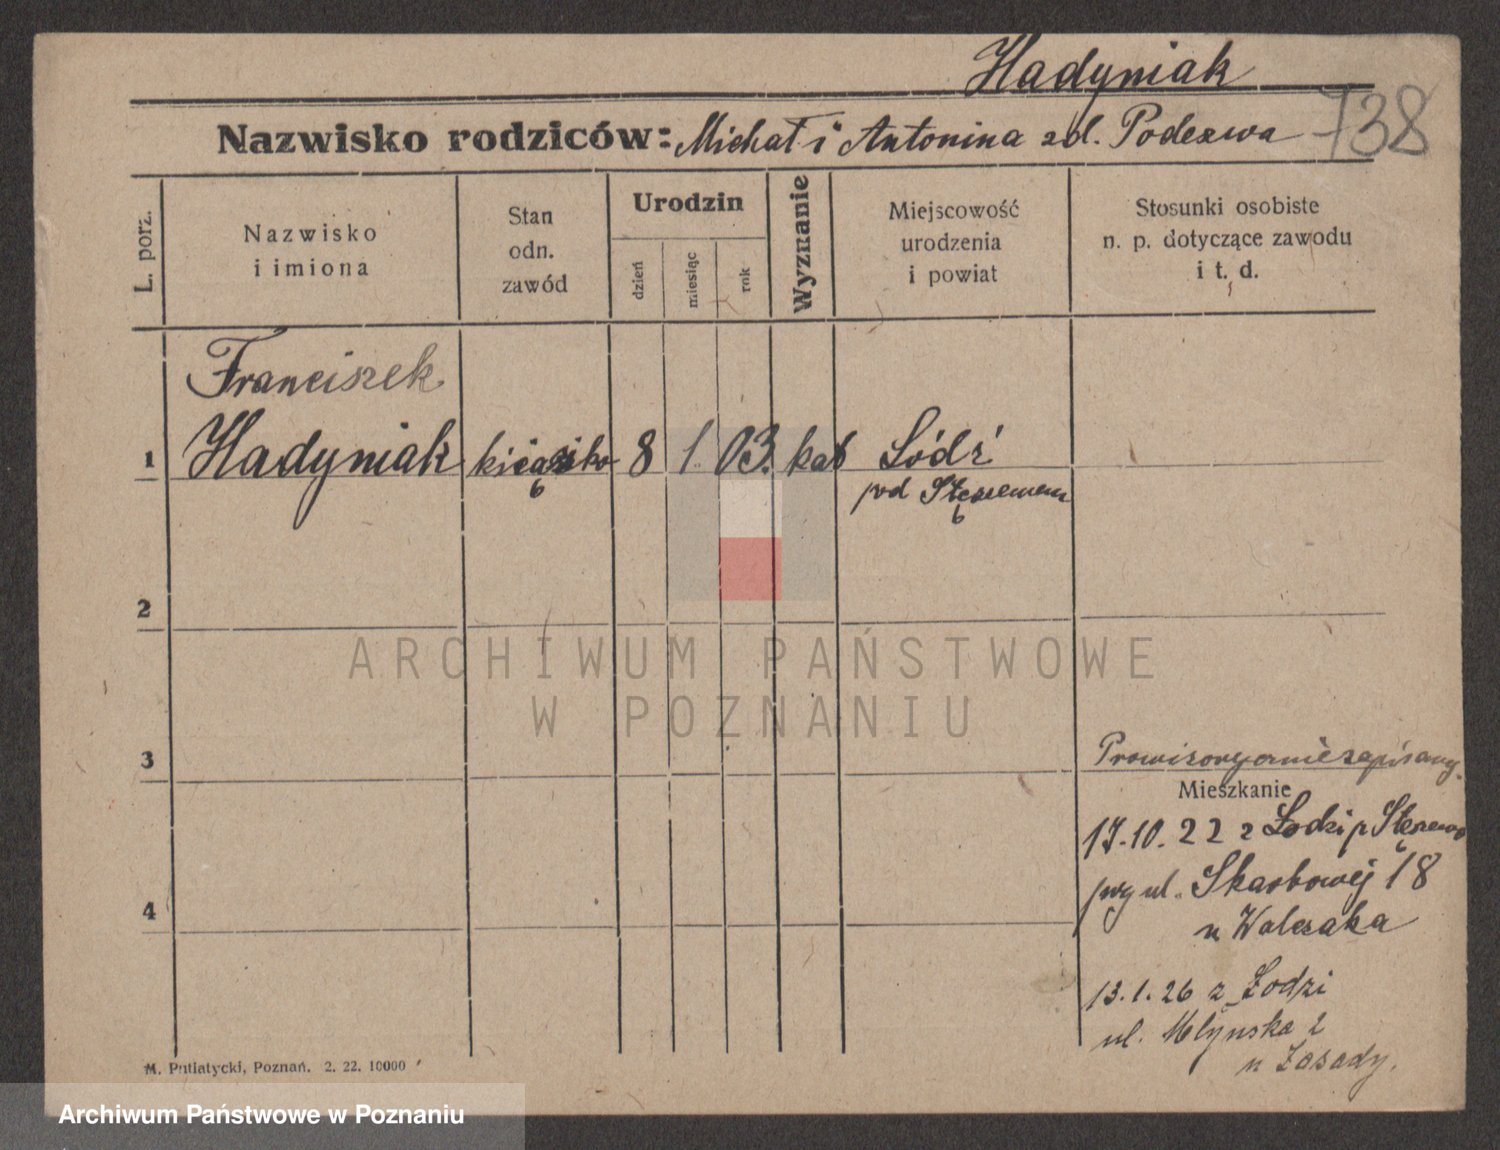 Hadyniak
738
Nazwisko rodziców: Michał i Antonina zd. Podeszwa
L. porz.
Nazwisko
i imiona
Stan
odn.
zawód
Urodzin
dzień
miesiąc
rok
Wyznanie
Miejscowość
urodzenia
i powiat
Stosunki osobiste
n. p. dotyczące zawodu
i t. d.
Franciszek
1 Hadyniak 8 1. 03. kat Łódź
pod Stęszewem
2
3
4
ARCHIWUM PAŃSTWOWE
W POZNANIU
Prowizorycznie zapisany.
Mieszkanie
17.10.22 z Łodzi p Stęszewo
ul. Skarbowej 18
u Walczaka
13.1.26 z Łodzi
ul. Młyńska 2
u Zasady.
M. Putiatycki, Poznań. 2. 22. 10000
Archiwum Państwowe w Poznaniu